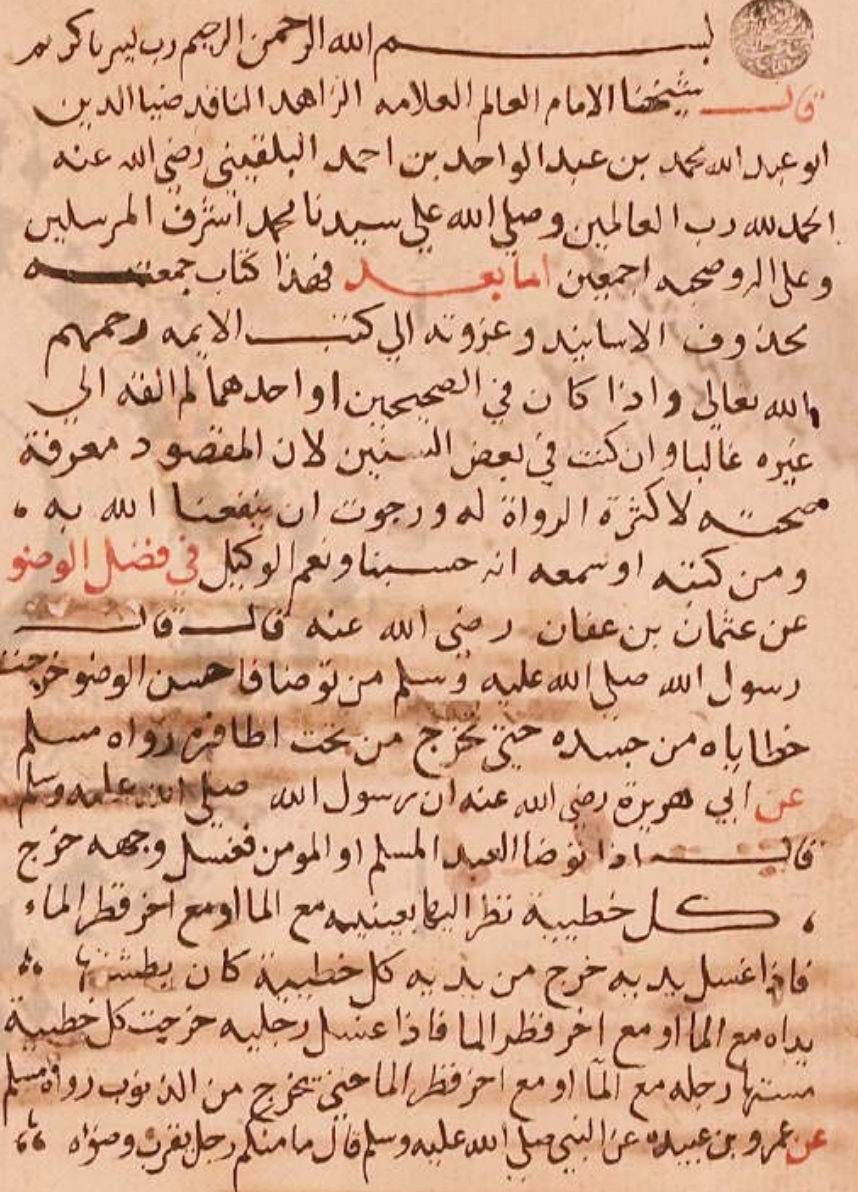 بسم الله الرحمن الرحيم رب يسر يا كريم
قال شيخنا الامام العالم العلامه الزاهد الناقد ضيا الدين
ابو عبد الله محمد بن عبد الواحد بن احمد البلقيني رضي الله عنه
الحمد لله رب العالمين وصلي الله علي سيدنا محمد اشرف المرسلين
وعلي اله وصحبه اجمعين اما بعد فهذا كتاب جمعته
محذوف الاسانيد وعزوته الي كتب الايمه رحمهم
الله تعالي واذا كان في الصحيحين او احدهما لم الفه الي
غيره غالبا وان كنت في بعض السنين لان المقصود معرفة
صحته لا كثرة الرواة له ورجوت ان ينفعنا الله به
ومن كتبه او سمعه انه حسبنا ونعم الوكيل في فضل الوضو
عن عثمان بن عفان رضي الله عنه قال قال
رسول الله صلي الله عليه وسلم من توضا فاحسن الوضو خرجت
خطاياه من جسده حتي تخرج من تحت اظافره رواه مسلم
عن ابي هريرة رضي الله عنه ان رسول الله صلي الله عليه وسلم
قال اذا توضا العبد المسلم او المومن فغسل وجهه خرج
كل خطيية نظر اليها بعينيه مع الما او مع اخر قطر الماء
فاذا غسل يديه خرج من يديه كل خطيية كان بطشتها
يداه مع الما او مع اخر قطر الما فاذا غسل رجليه خرجت كل خطيية
مستها رجله مع الما او مع اخر قطر الما حتي يخرج من الذنوب رواه مسلم
عن عمرو بن عبيده عن النبي صلي الله عليه وسلم قال ما منكم رجل يقرب وضواه